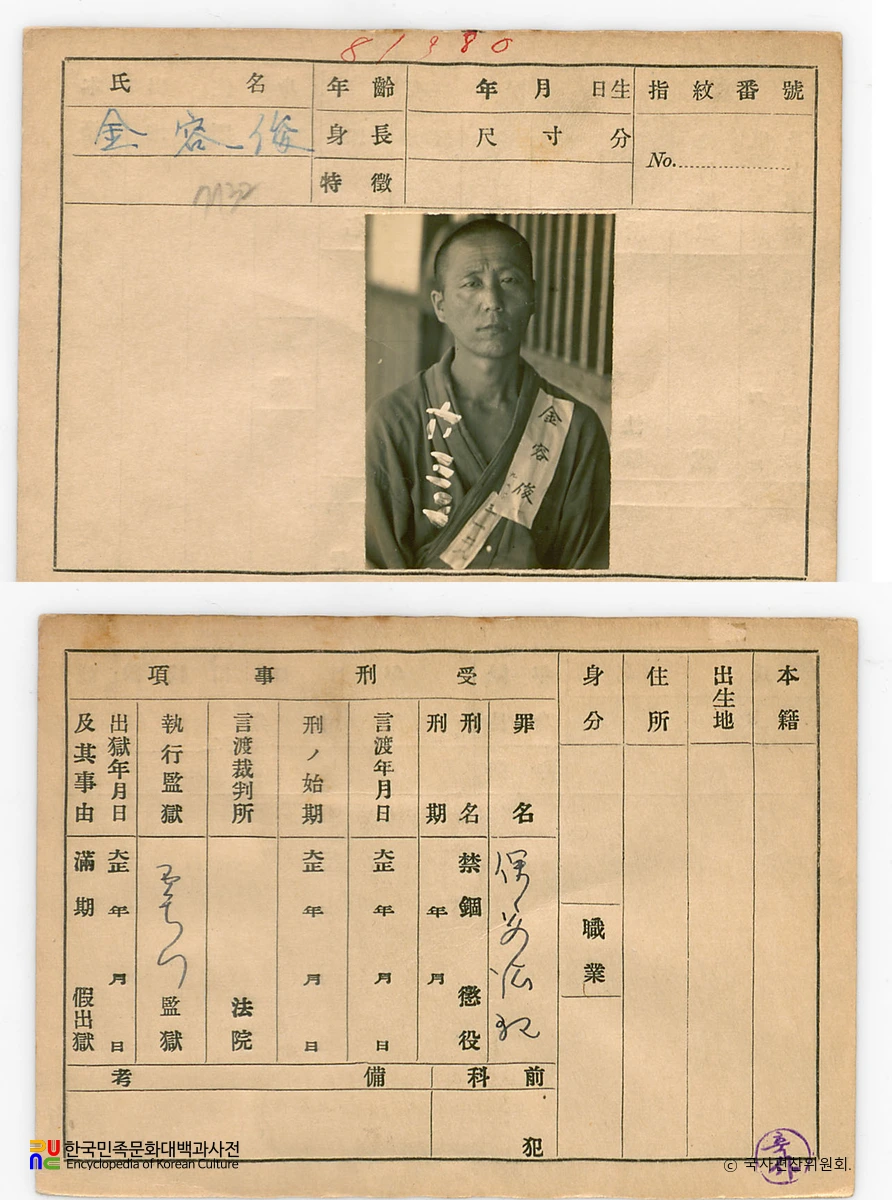 81980
氏名
金容俊
年齡
年月日生
身長
尺寸分
特徵
指紋番號
No.
金容俊
本籍
出生地
住所
身分
職業
受刑事項
罪名
保安法犯
刑名
禁錮 懲役
刑期
年月
言渡年月日
大正年月日
刑ノ始期
大正年月日
言渡裁判所
法院
執行監獄
監獄
出獄年月日
及其事由
大正年月日
滿期 假出獄
前科
犯
備考
한국민족문화대백과사전
Encyclopedia of Korean Culture
© 국사편찬위원회.